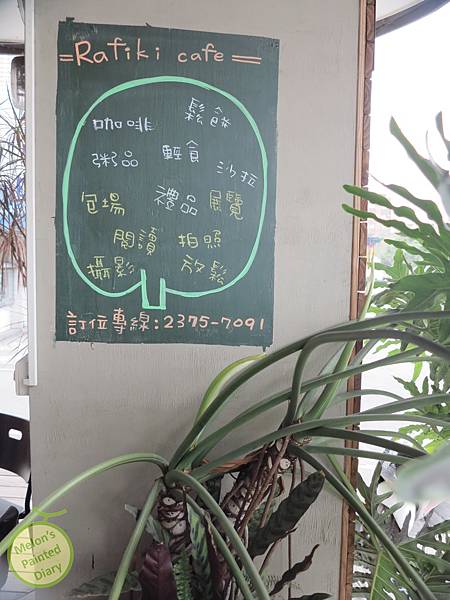 =Rafiki cafe=
鬆餅
咖啡
粥品 輕食 沙拉
包場 禮品 展覽
閱讀 拍照
攝影 放鬆
訂位專線:2375-7091
Melon's
Painted
Diary